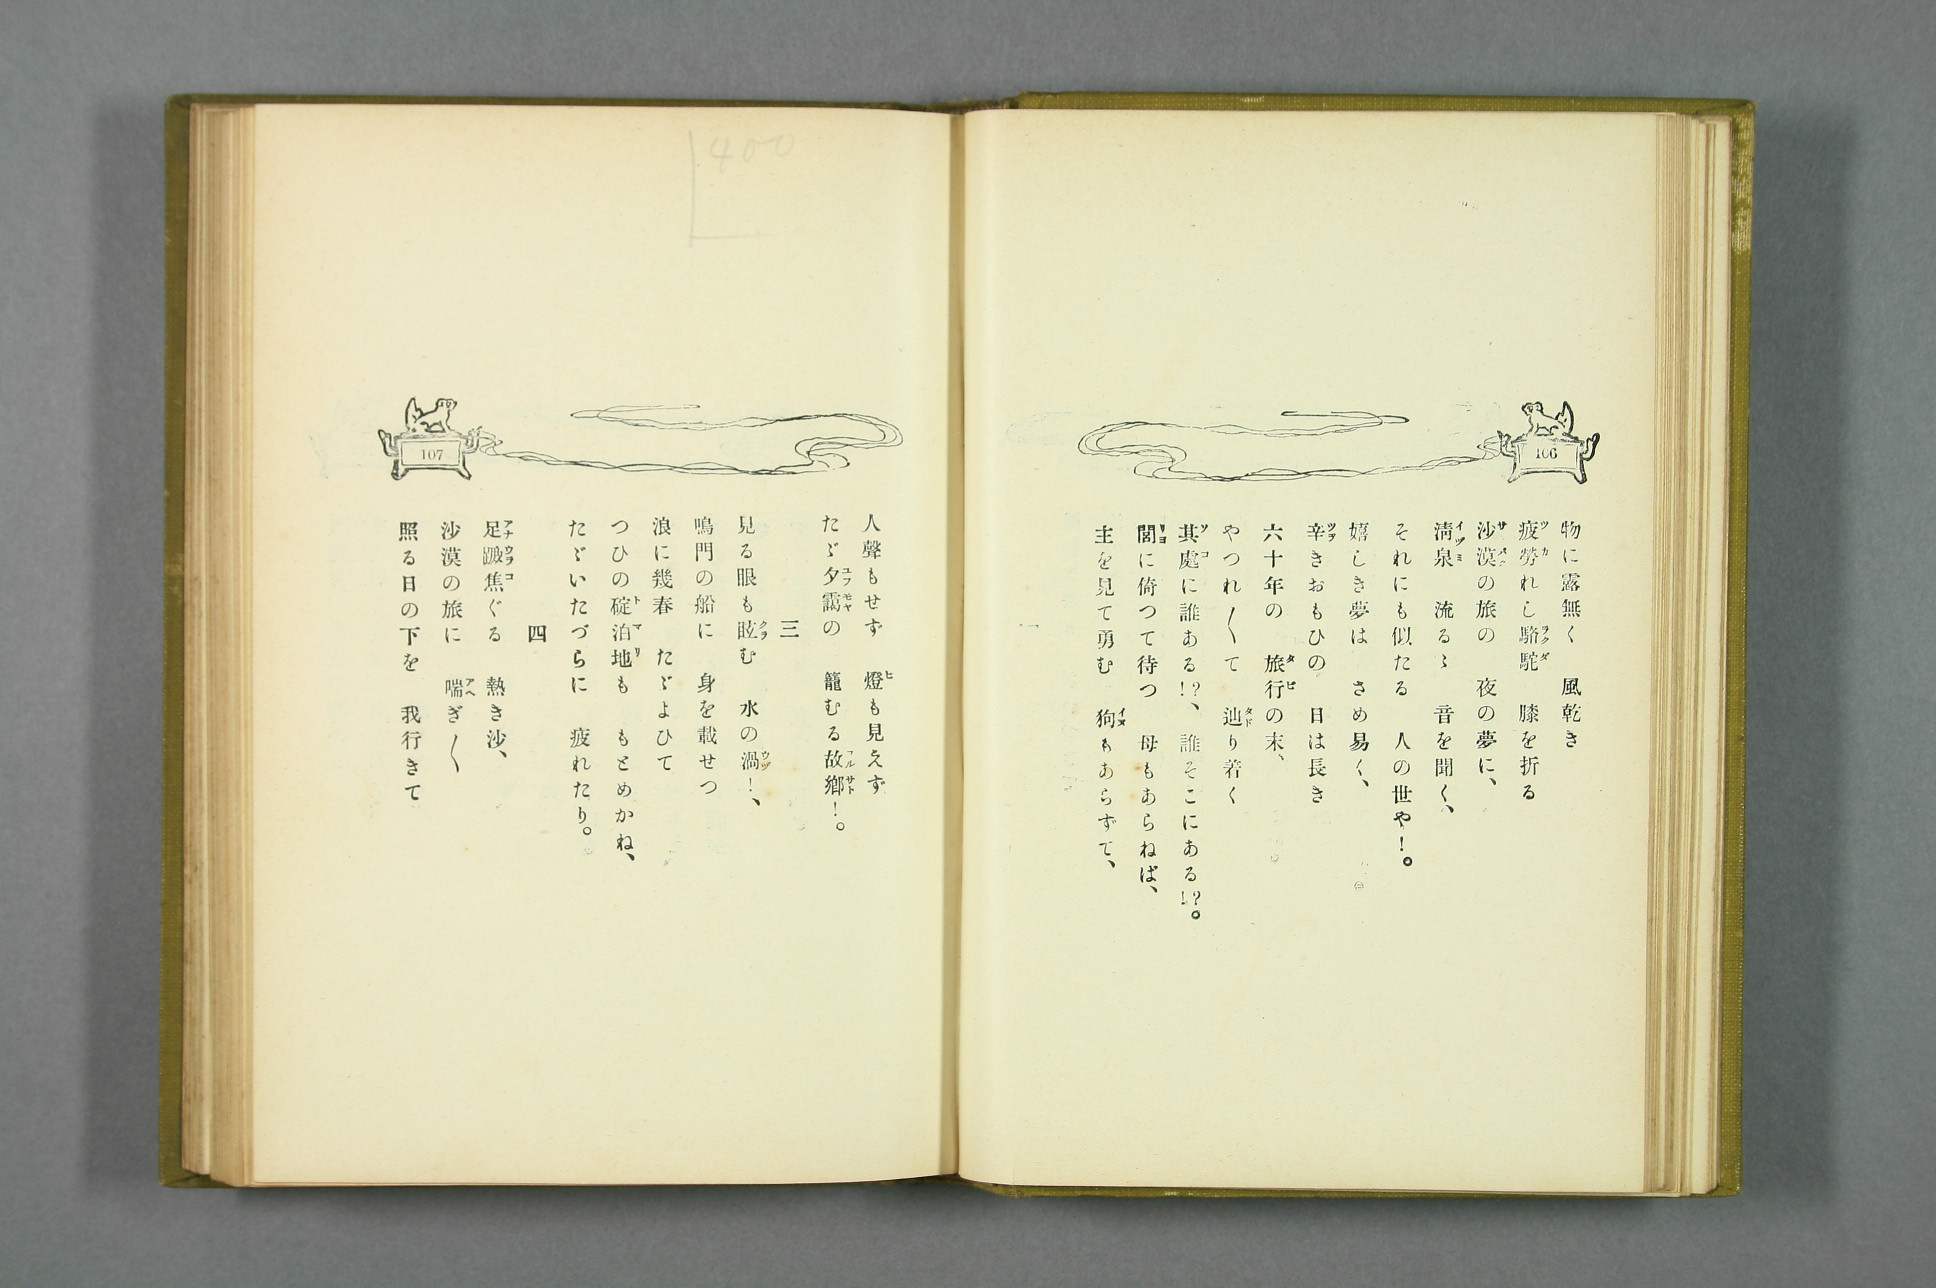 106
物に露無く　風乾き
疲勞れし駱駝　膝を折る
沙漠の旅の　夜の夢に、
淸泉　流るゝ　音を聞く、
それにも似たる　人の世や！。
嬉しき夢は　さめ易く、
辛きおもひの　日は長き
六十年の　旅行の末、
やつれ〱て　辿り着く
其處に誰ある!?、　誰そこにある!?。
閭に倚つて待つ　母もあらねば、
主を見て勇む　狗もあらずて、
400
107
人聲もせず　燈も見えず
たゞ夕靄の　籠むる故鄕！。
三
見る眼も眩む　水の渦！、
鳴門の船に　身を載せつ
浪に幾春　たゞよひて
つひの碇泊地も　もとめかね、
たゞいたづらに　疲れたり。
四
足蹠焦ぐる　熱き沙、
沙漠の旅に　喘ぎ〱
照る日の下を　我行きて